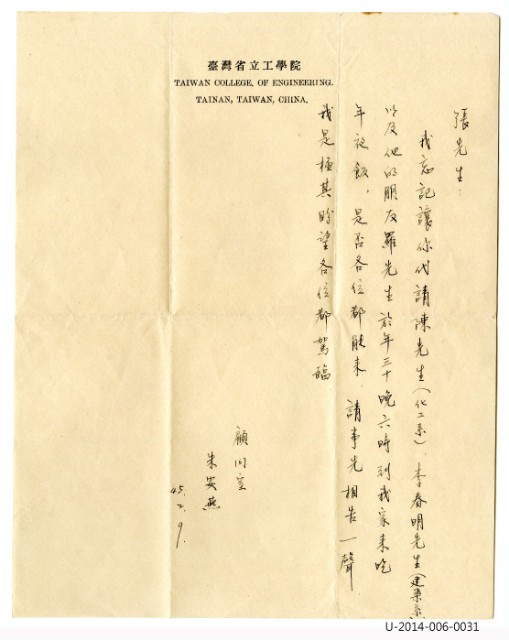 臺灣省立工學院
TAIWAN COLLEGE, OF ENGINEERING.
TAINAN, TAIWAN, CHINA.
張先生：
我忘記讓你代請陳先生（化工系）李春明先生（建築系）
以及他的朋友羅先生於年三十晚六時到我家來吃
年夜飯，是否各位都能來，請事先相告一聲
我是極其盼望各位都駕臨
顧問室
朱英燕
45.2.9.
U-2014-006-0031